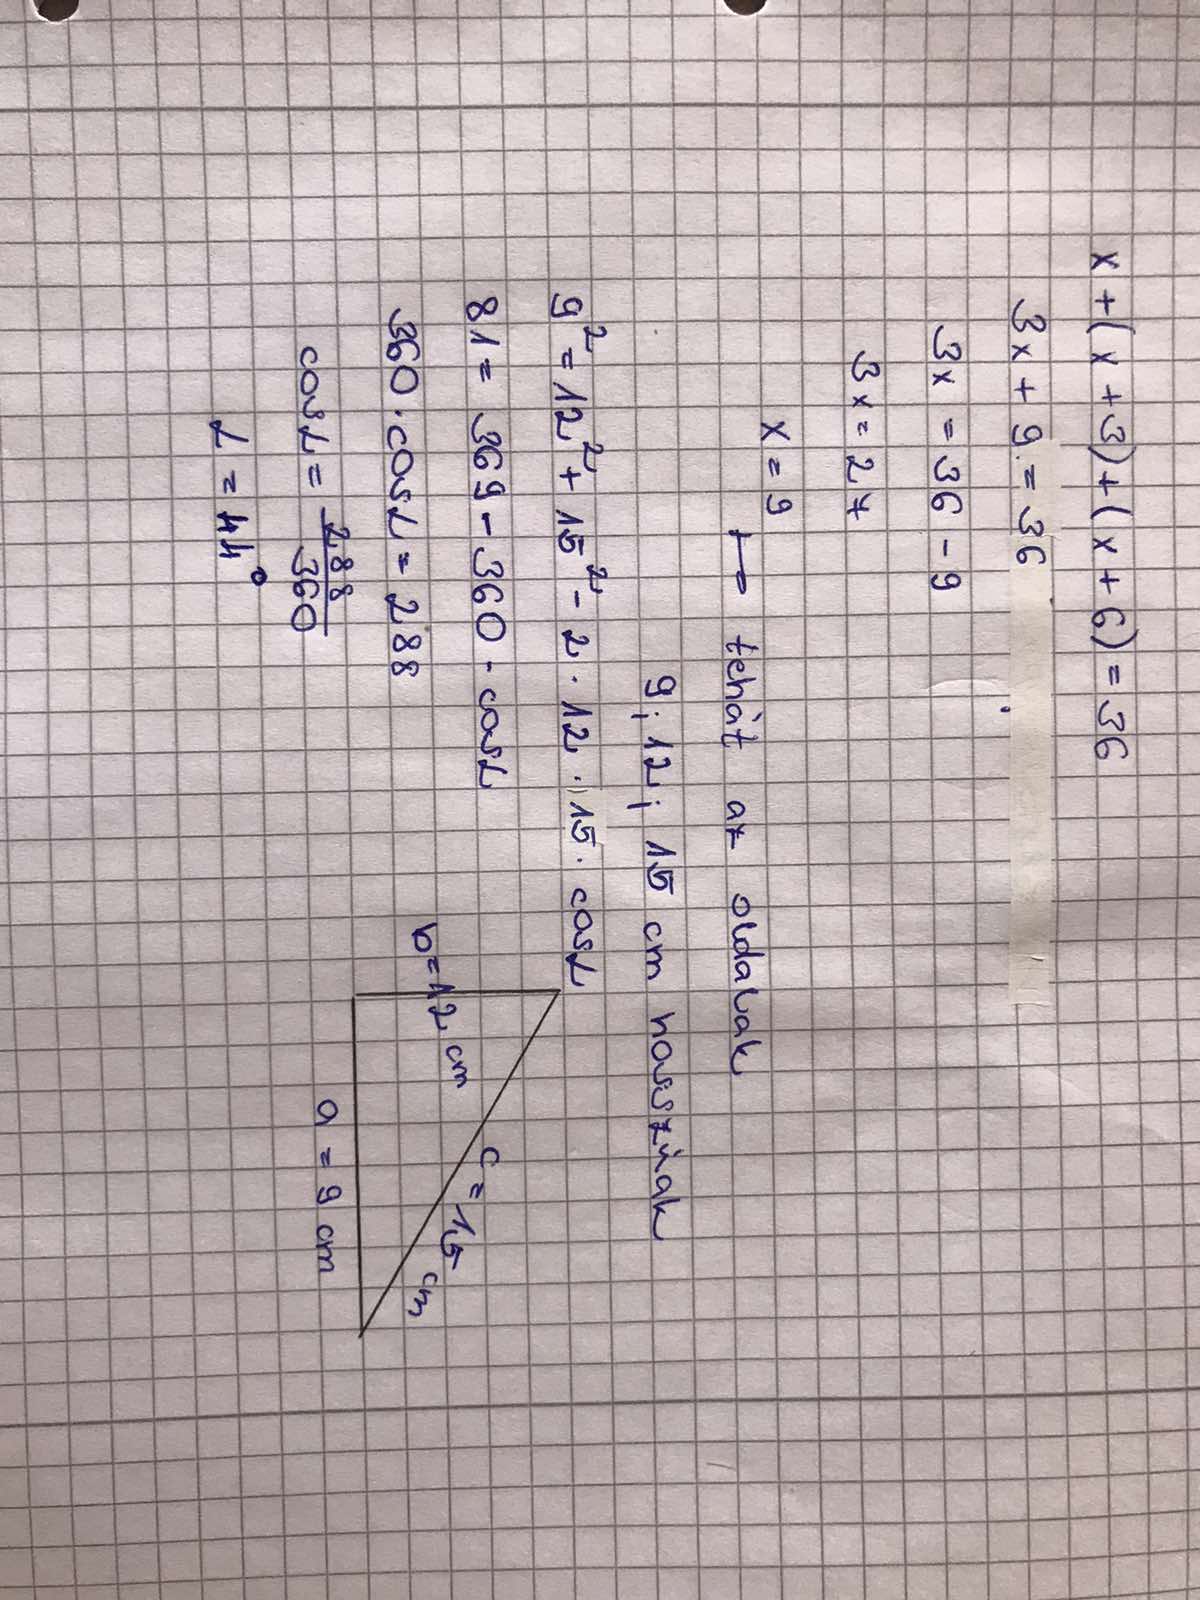 x + (x + 3) + (x + 6) = 36
3x + 9 = 36
3x = 36 - 9
3x = 27
x = 9
→ tehát az oldalak
9; 12; 15 cm hosszúak
9² = 12² + 15² - 2 · 12 · 15 · cosα
81 = 369 - 360 · cosα
360 · cosα = 288
cosα = 288/360
α = 44°
b = 12 cm
c = 15 cm
a = 9 cm